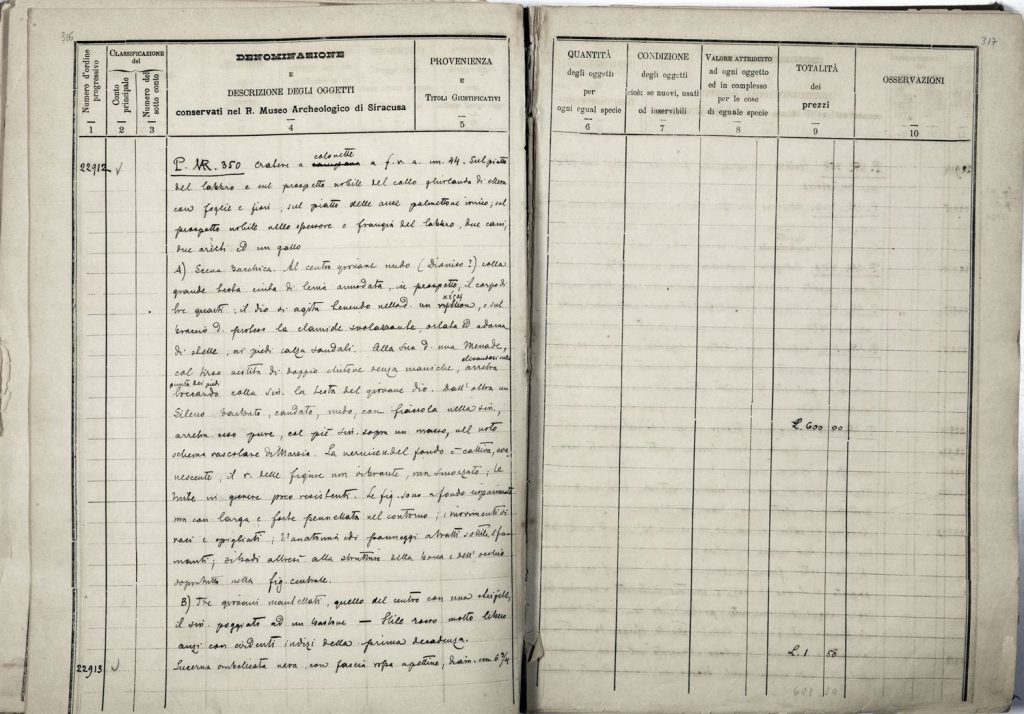 316
Numero d'ordine progressivo
CLASSIFICAZIONE del
Conto principale
Numero del sotto conto
DENOMINAZIONE
E
DESCRIZIONE DEGLI OGGETTI
conservati nel R. Museo Archeologico di Siracusa
PROVENIENZA
E
TITOLI GIUSTIFICATIVI
1 2 3 4 5
22912 P. AR. 350 Cratere a colonette a f. r. a. cm. 44. Sul piatto
del labbro e sul prospetto nobile del collo ghirlanda di edera
con foglie e fiori; sul piatto delle anse palmettone ionico; sul
prospetto nobile nello spessore o frangia del labbro, due cani,
due arieti ed un gallo
A) Scena bacchica. Al centro giovane nudo (Dioniso?) colla
grande testa cinta di tenia annodata, in prospetto, il corpo di
tre quarti; il dio si agita tenendo nella d. un, e sul
braccio d. proteso la clamide svolazzante, orlata ed adorna
di stelle, ai piedi calza sandali. Alla sua d. una Menade,
col tirso vestita di doppio chitone senza maniche, elevandosi sulla arretra
punta dei piedi toccando colla sin. la testa del giovane dio. Dall'altra un
Sileno barbato, caudato, nudo, con fiaccola nella sin.,
arretra esso pure, col piè sin. sopra un masso, nel noto
schema vascolare di Marsia. La vernice n. del fondo è cattiva, eva
nescente; il r. delle figure non vibrante, ma smorzato; le
tinte in genere poco resistenti. Le fig. sono a fondo risparmiato
ma con larga e forte pennellata nel contorno; i movimenti vi
vaci e spigliati; l'anatomia ed i panneggi a tratti sottili, sfu
manti; altresì alla struttura della bocca e dell'occhio
soprattutto nella fig. centrale.
B) Tre giovani mantellati, quello del centro con uno strigile,
il sin. poggiato ad un bastone — Stile rosso molto libero
anzi con evidenti indizi della prima decadenza.
22913 Lucerna ombelicata nera, con fascia rossa a pettine, diam. cm 6 3/4
317
QUANTITÀ
degli oggetti
per
ogni egual specie
CONDIZIONE
degli oggetti
cioè: se nuovi, usati
od inservibili
VALORE ATTRIBUITO
ad ogni oggetto
ed in complesso
per le cose
di eguale specie
TOTALITÀ
dei
prezzi
OSSERVAZIONI
6 7 8 9 10
L. 600 00
L. 1 50
601 50